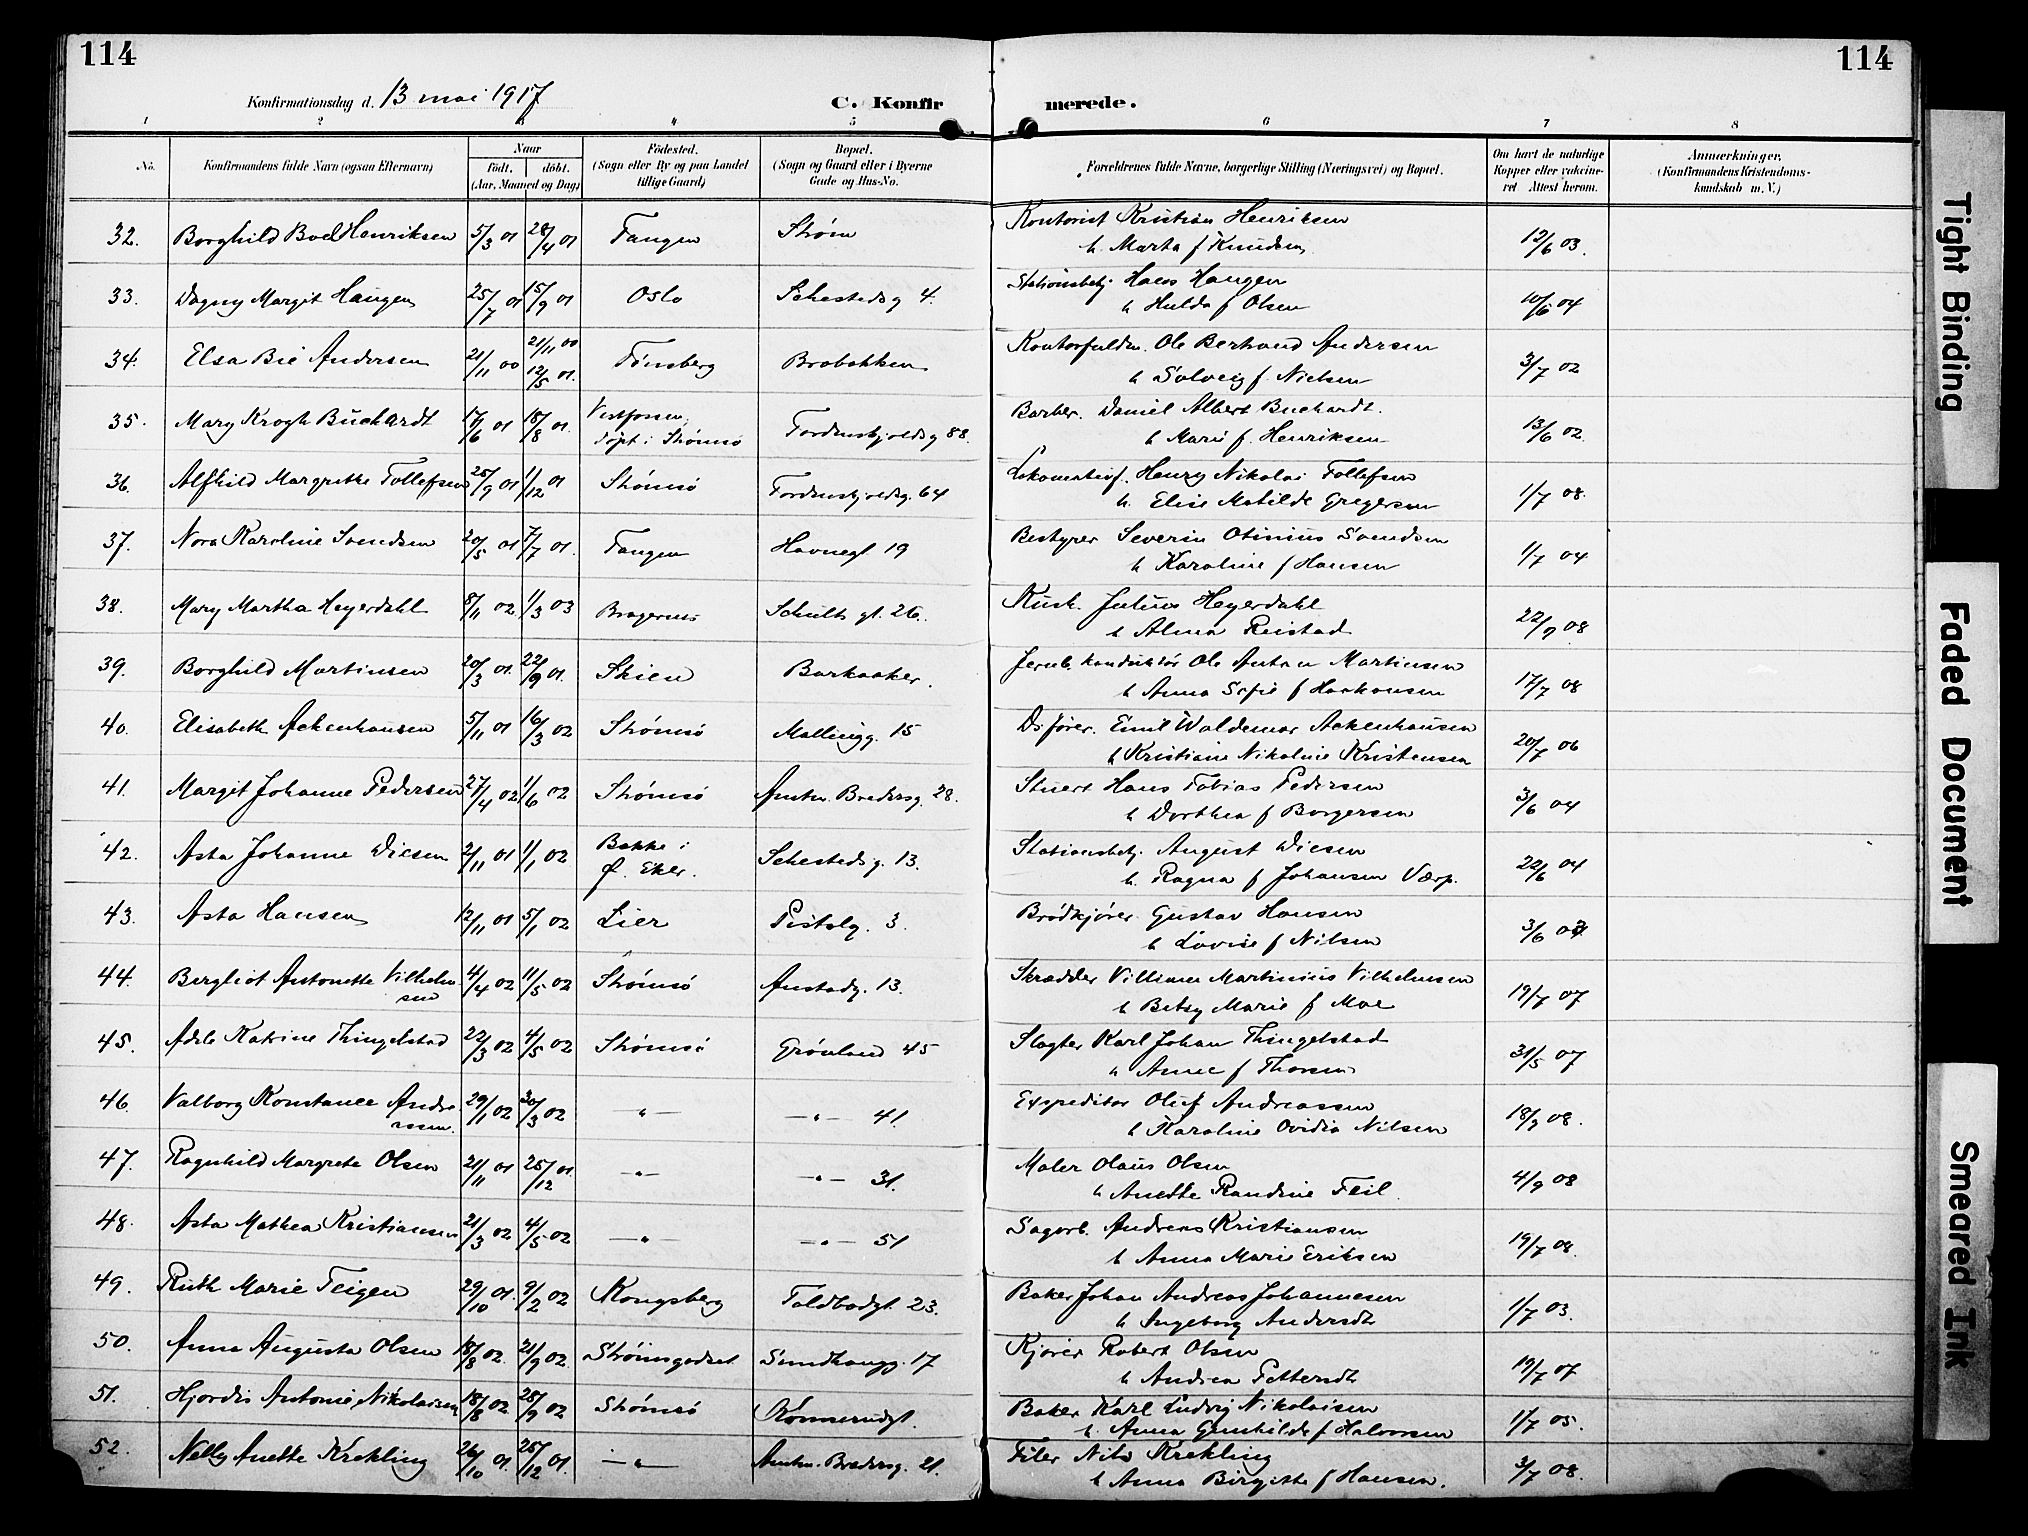 114
114
Konfirmationsdag d. 13 mai 1917
C. Konfirmerede.
1 2 3 4 5 6 7 8
No.
Konfirmandens fulde Navn (ogsaa Efternavn)
Naar
födt. döbt.
(Aar, Maaned og Dag)
Födested.
(Sogn eller By og paa Landet
tillige Gaard)
Bopæl.
(Sogn og Gaard eller i Byerne
Gade og Hus-No.
Forældrenes fulde Navne, borgerlige Stilling (Næringsvei) og Bopæl.
Om havt de naturlige
Kopper eller vakcine-
ret Attest herom.
Anmærkninger.
(Konfirmandens Kristendoms-
kundskab m. V.)
32. Borghild Bodil Henriksen 5/3 01 28/4 01 Tangen Strøm Kontorist Kristian Henriksen
h. Marta f Knudsen 12/6 03.
33. Dagny Margit Haugen 25/7 01 15/9 01 Oslo Sehestedsg 4. Stationsbetj. Haugen
h Hulda f Olsen 10/6 04
34. Elsa Bie Andersen 21/11 00 21/11 00 12/5 01. Tönsberg Brobakken Kontorfuldm. Ole Berhard Andersen
h Solveig f. Nielsen 3/7 02
35. Mary Krogh Buchardt 17/6 01 18/8 01. Vestfossen,
döpt i Strömsö Tordenskjoldsg 88. Barber. Daniel Albert Buchardt.
h Marie f. Henriksen 13/6 02
36. Alfhild Margrethe Tollefsen 25/9 01 1/12 01 Strömsö Tordenskjoldsg. 64 Lokomotivf. Henry Nikolai Tollefsen
h. Elise Matilde Gregersen 1/7 08.
37. Nora Karoline Svendsen 20/5 01 7/7 01. Tangen Havnegt 19 Bestyrer Severin Otinius Svendsen
h Karoline f Hansen 1/7 04
38. Mary Martha Heyerdahl 8/11 02 1/3 03 Bragernes Schults gt. 26. Kusk. Julius Heyerdahl
h Alma Reistad 22/9 08
39. Borghild Martinsen 20/3 01. 22/9 01. Skien Barkaaker. Jernb. konduktör Ole Anton Martinsen
h Anna Sofie f Haakonsen 17/7 08
40. Elisabeth Ackenhausen 5/11 01 16/3 02 Strömsö Mallingg. 15 Ds.förer. Emil Waldemar Ackenhausen
h Kristiane Nikoline Kristensen 20/7 06
41. Margit Johanne Pedersen 27/4 02 1/6 02 Strömsö Amtm. Bredersg. 28. Stuert Hans Tobias Pedersen
h Dorthea f Borgersen 3/6 04
42. Asta Johanne Diesen 2/11 01 1/1 02 Bakke i
Ø. Eker. Sehestedsg. 13. Stationsbetj. August Diesen
h. Ragna f Johansen Værp. 22/6 04
43. Asta Hansen 12/11 01 5/1 02 Lier Pistolg. 3. Brödkjörer Gustav Hansen
h Lovise f Nilsen 3/6
44. Bergliot Antonette Vilhelm-
sen 4/4 02 11/5 02 Strömsö Austadg. 13. Skradder Villiam Martinius Vilhelmsen
h Betsy Marie f Moe 19/7 07
45. Adele Katrine Thingelstad 22/3 02 4/5 02 Strömsö Grönland 45 Slagter Karl Johan Thingelstad
h Anne f Thorsen 31/5 07
46. Valborg Konstance Andre
assen. 29/1 02 30/3 02 —"— —"— 41. Expeditör Oluf Andreassen
h Karoline Ovidia Nilsen 18/9 08.
47. Ragnhild Margrete Olsen 21/11 01 25/12 01. —"— —"— 31. Maler Olaus Olsen
h Anette Randine Feil. 4/9 08
48. Asta Mathea Kristiansen 21/3 02 4/5 02 —"— —"— 51 Sagarb. Andreas Kristiansen
h Anna Marie Eriksen 19/7 08.
49. Ruth Marie Teigen 29/10 01. 9/2 02 Kongsberg Toldbodgt. 23. Baker Johan Andreas Johannesen
h Ingeborg Andersdtr 1/7 03.
50. Anna Augusta Olsen 18/8 02. 21/9 02. Strömsgodset Sundhaugg. 17 Kjörer Robert Olsen
h Andrea Pettersdtr 19/7 07
51. Hjordis Antonie Nikolaisen 18/8 02 28/9 02 Strömsö Konnerudgt. Baker Karl Ludvig Nikolaisen
h. Anna Gunhilde f Halvorsen 1/7 05.
52. Nelly Anette Krekling 26/10 01. 25/12 01. —"— Amtm. Bredersg. 21. Filer Nils Krekling
h Anna Birgitte f Hansen. 3/7 08.
Tight Binding
Faded Document
Smeared Ink